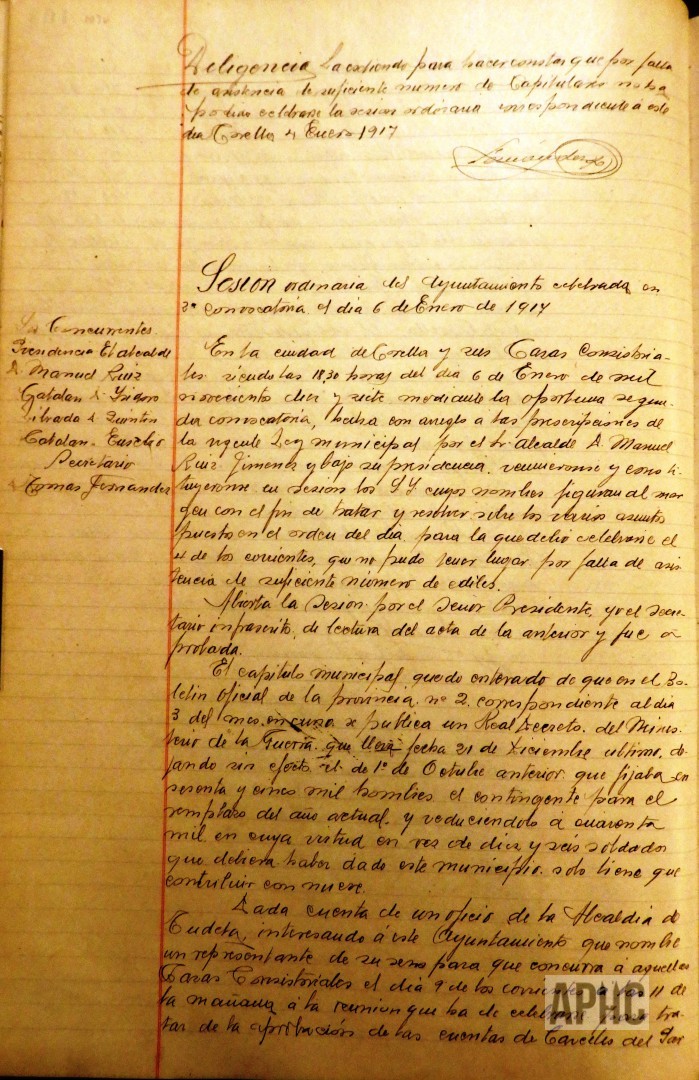 Deligencia La extiendo para hacer constar que por falta
de asistencia de suficiente número de Capitulares no ha
podido celebrarse la sesion ordinaria correspondiente á este
dia Corella 4 Enero 1917
Sesión ordinaria del Ayuntamiento celebrada en
2ª convocatoria el dia 6 de Enero de 1917
Concurrentes
Presidencia El alcalde
D Manuel Ruiz
Catalan D Isidoro
D Quintin
Catalan Eusebio
Secretario
Tomas Fernandez
En la ciudad de Corella y sus Casas Consistoria-
les siendo las 18,30 horas del dia 6 de Enero de mil
novecientos diez y siete mediante la oportuna segun-
da convocatoria, hecha con arreglo a las prescripciones de
la vigente Ley municipal por el Sr. Alcalde D. Manuel
Ruiz Jimenez y bajo su presidencia, reunieronse y consti-
tuyeronse en sesion los SS cuyos nombres figuran al mar
gen con el fin de tratar y resolver sobre los varios asuntos
puestos en el orden del dia para la que debió celebrarse el
4 de los corrientes, que no pudo tener lugar por falta de asis
tencia de suficiente número de ediles.
Abierta la sesion por el Señor Presidente, yo el secre-
tario infrascrito, di lectura del acta de la anterior y fue a-
probada.
El capitulo municipal quedo enterado de que en el Bo-
letin oficial de la provincia nº 2 correspondiente al dia
3 del mes en curso se publica un Real Decreto del Minis-
terio de la Guerra que lleva fecha 21 de Diciembre ultimo, de-
jando sin efecto el de 1º de Octubre anterior que fijaba en
sesenta y cinco mil hombres el contingente para el
remplazo del año actual, y reduciendolo á cuarenta
mil en cuya virtud en vez de diez y seis soldados
que debiera haber dado este municipio solo tiene que
contribuir con nueve.
Dada cuenta de un oficio de la Alcaldia de
Tudela, interesando á este Ayuntamiento que nombre
un representante de su seno para que concurra á aquellas
Casas Consistoriales el dia 9 de los corrientes á las 11 de
la mañana á la reunion que ha de celebrarse para tra-
tar de la aprobación de las cuentas de Carceles del Par
APHC